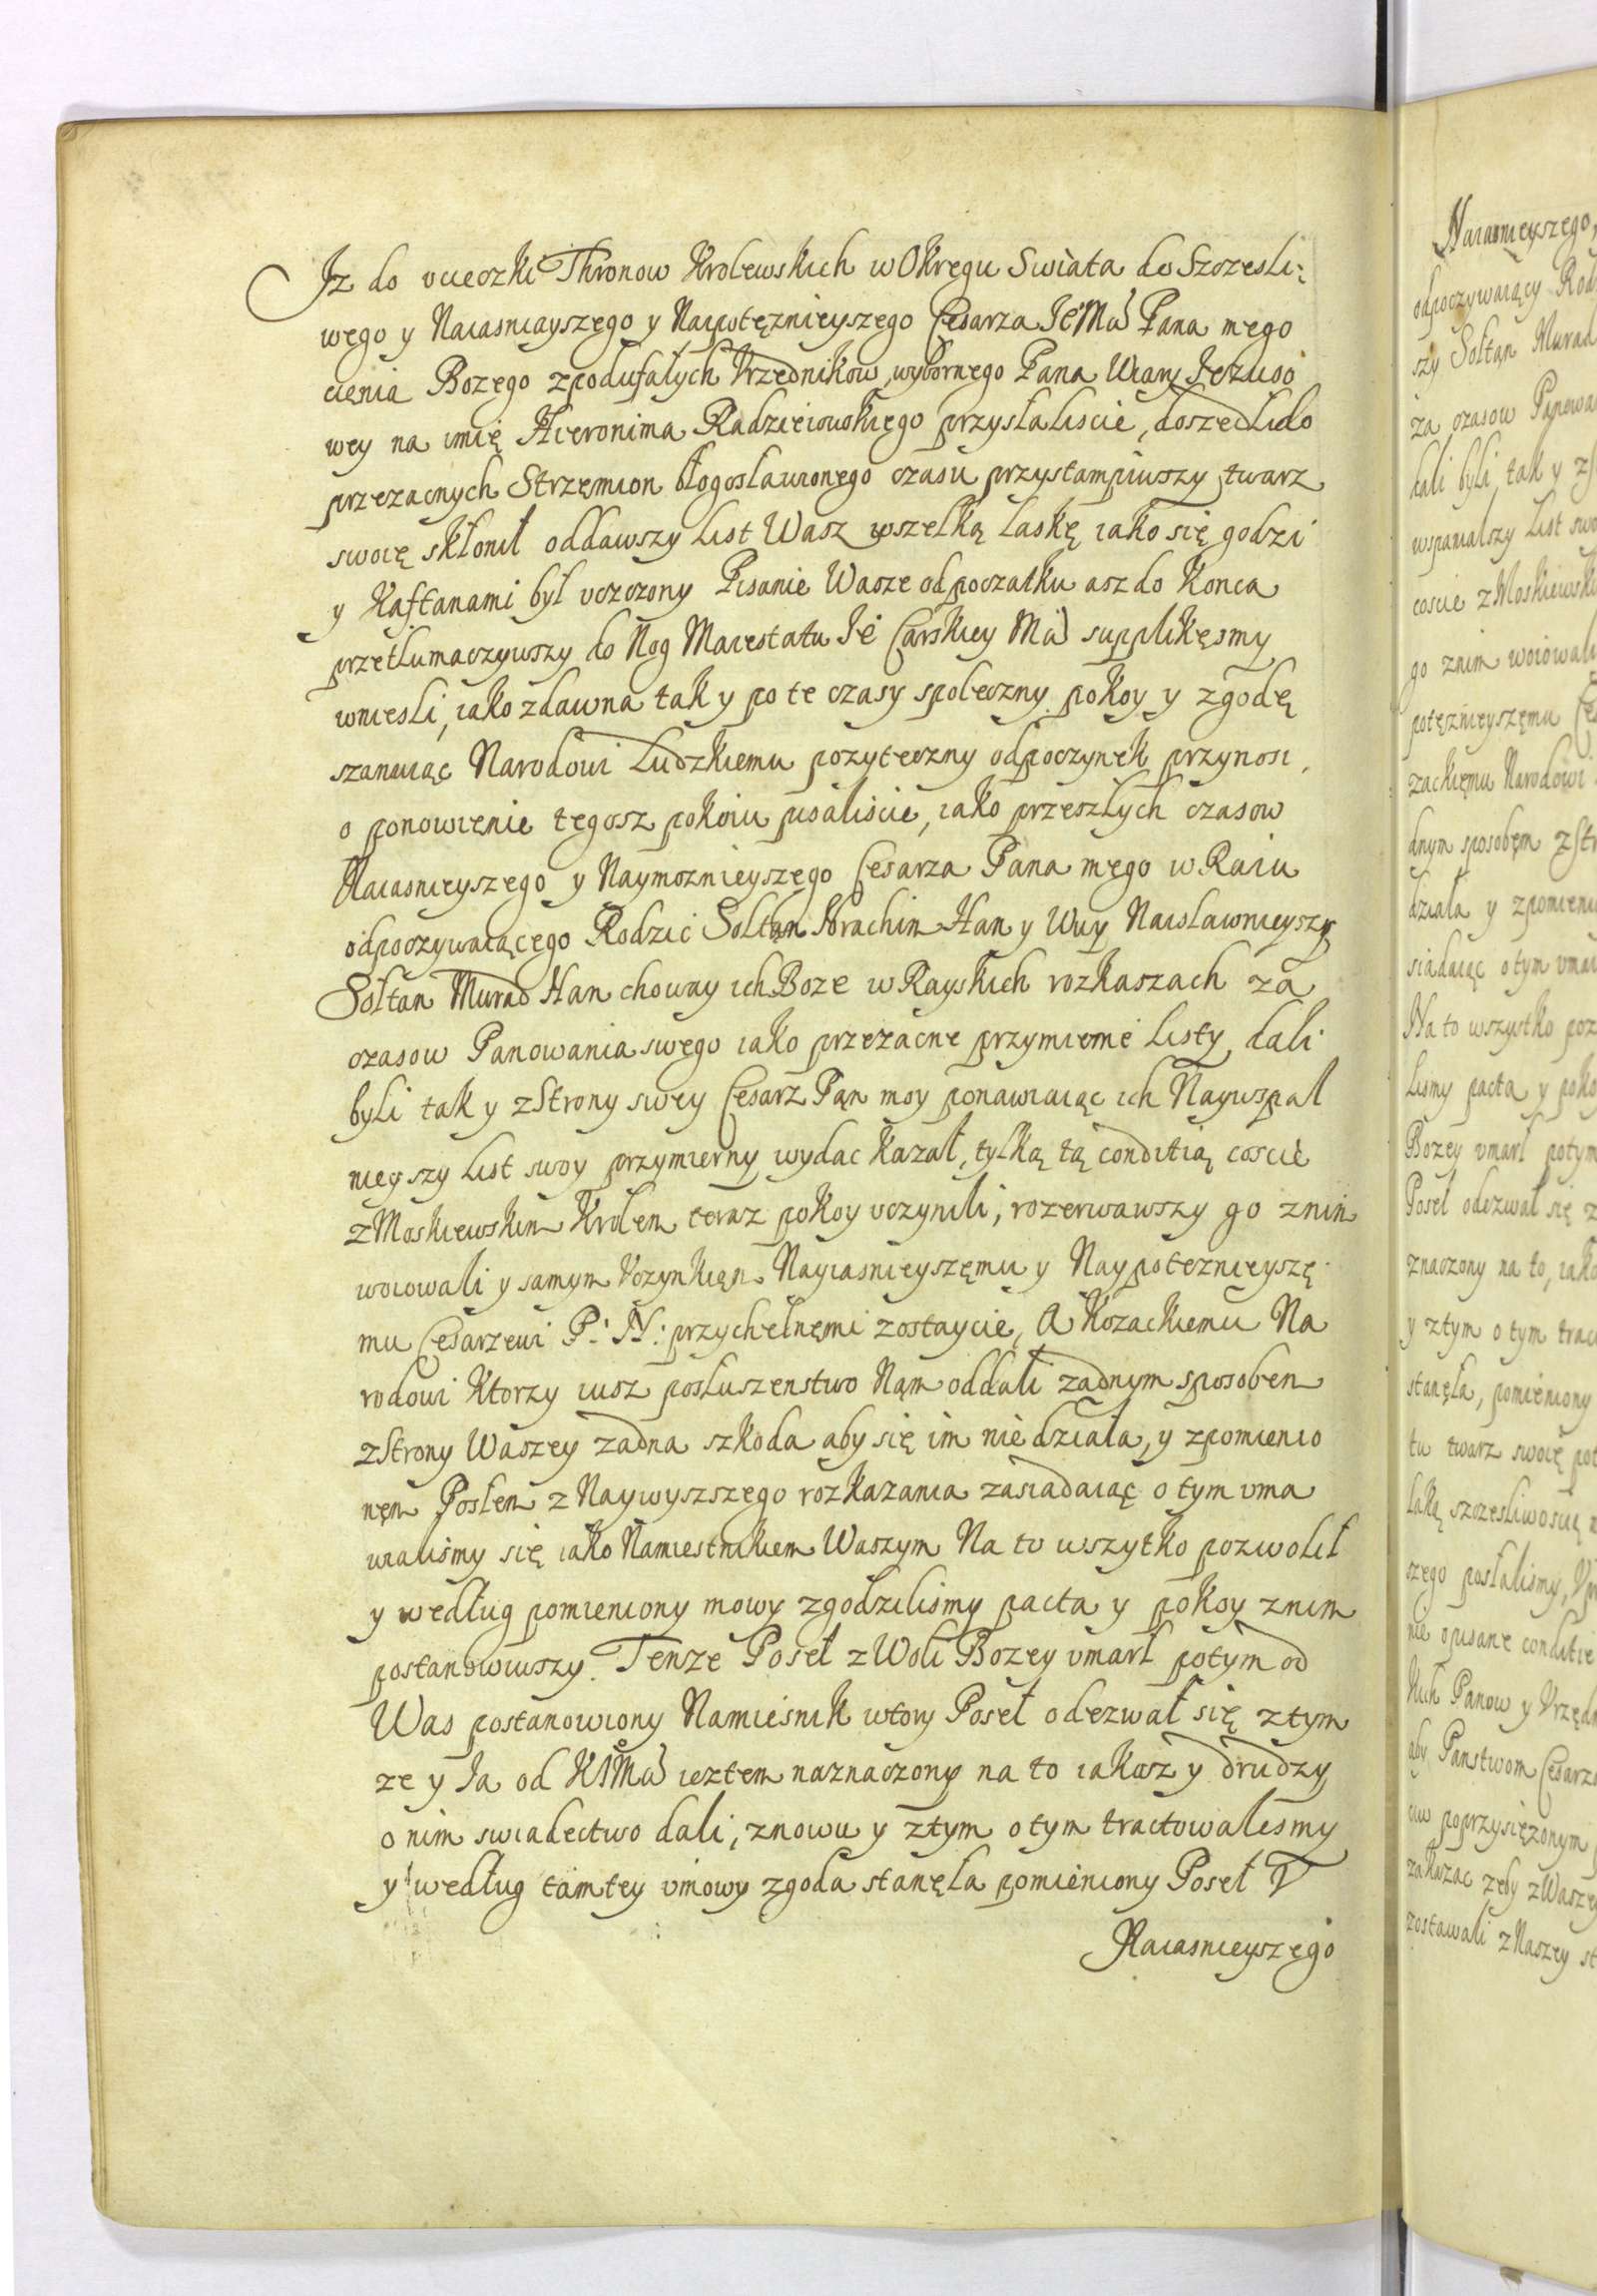 Jz do vcieczki Thronow Krolewskich w Okręgu Swiata do Szczesli:
wego y Naiasniayszego y Naipotęznieyszego Cesarza Je Mśʹ Pana mego
cienia Bozego z podufałych Vrzędnikow, wybornego Pana Wiary Jezuso
wey na imię Hieronima Radzieiowskiego przysłaliscie, doszedł do
przezacnych Strzęmion błogosławionego czasu przystampiwszy, twarz
swoię skłonił oddawszy List Wasz wszelką Laskę iako się godzi
y Kaftanami był vczczony Pisanie Wasze od początku asz do Konca
przetlumaczywszy do Nog Maiestatu Je Carskiey Mśʹ supplikęsmy
wniesli, iako zdawna tak y po te czasy spoleczny pokoy y zgodę
szanuiąc Narodowi Ludzkiemu pozyteczny odpoczynek przynosi,
o ponowienie tegosz pokoiu pisaliscie, iako przeszłych czasow
Naiasnieyszego y Naymoznieyszego Cesarza Pana mego w Raiu
odpoczywaiącego Rodzic Soltan Ibrachim Han y Wuy Naislawnieyszy
Sołtan Murad Han choway ich Boze w Rayskich rozkaszach za
czasow Panowania swego iako przezacne przymierne Listy dali
byli tak y z Strony swey Cesarz Pąn moy ponawiaiąc ich Naywspal
nieyszy List swoy przymierny wydac kazał, tylką tą conditią coscie
z Moskiewskim Krolem teraz pokoy vczynili, rozerwawszy go z nim
woiowali y samym Vczynkięm Nayiasnieyszęmu y Naypotęznieyszę
mu Cesarzewi P: N: przychelnęmi zostaycie, A Kozackiemu Na
rodowi Ktorzy iusz posłuszenstwo Nąm oddali zadnym sposobem
z Strony Waszey zadna szkoda aby się im nie działa, y z pomienio
nęm Posłem z Naywyszszego rozkazania zasiadaiąc o tym vma
wialismy się iako Namiestnikiem Waszym Na to wszytko pozwolił
y według pomieniony mowy zgodzilismy pacta y pokoy z nim
postanowiwszy. Tenze Poseł z Woli Bozey vmarł potym od
Was postanowiony Namiesnik wtory Poseł odezwał się z tym
ze y Ja od KJMśʹ iestem naznaczony na to iakosz y drudzy
o nim swiadectwo dali, znowu y z tym o tym tractowalismy
y według tamtey vmowy zgoda stanęła pomieniony Poseł V
Naiasnieyszego
Naiasnieyszego,
odpoczywaiący
szy Soltan Murad
za czasow
dali byli, tak y
wspanialszy List
coscie z
go znim woiowali
potęznieyszęmu
zackięmu Narodowi
dnym sposobęm
działa y
siadaiąc o tym
Na to wszystko
lismy pacta y
Bozey vmarł potym
Poseł odezwał się
znaczony na to, iako
y z tym o tym
stanęła, pomieniony
tu twarz swoię
laką
szego posłalismy,
nie opisane conditie
Panow y
aby Panstwom
poprzysięzonym
zakazac zeby
zostawali z Naszey